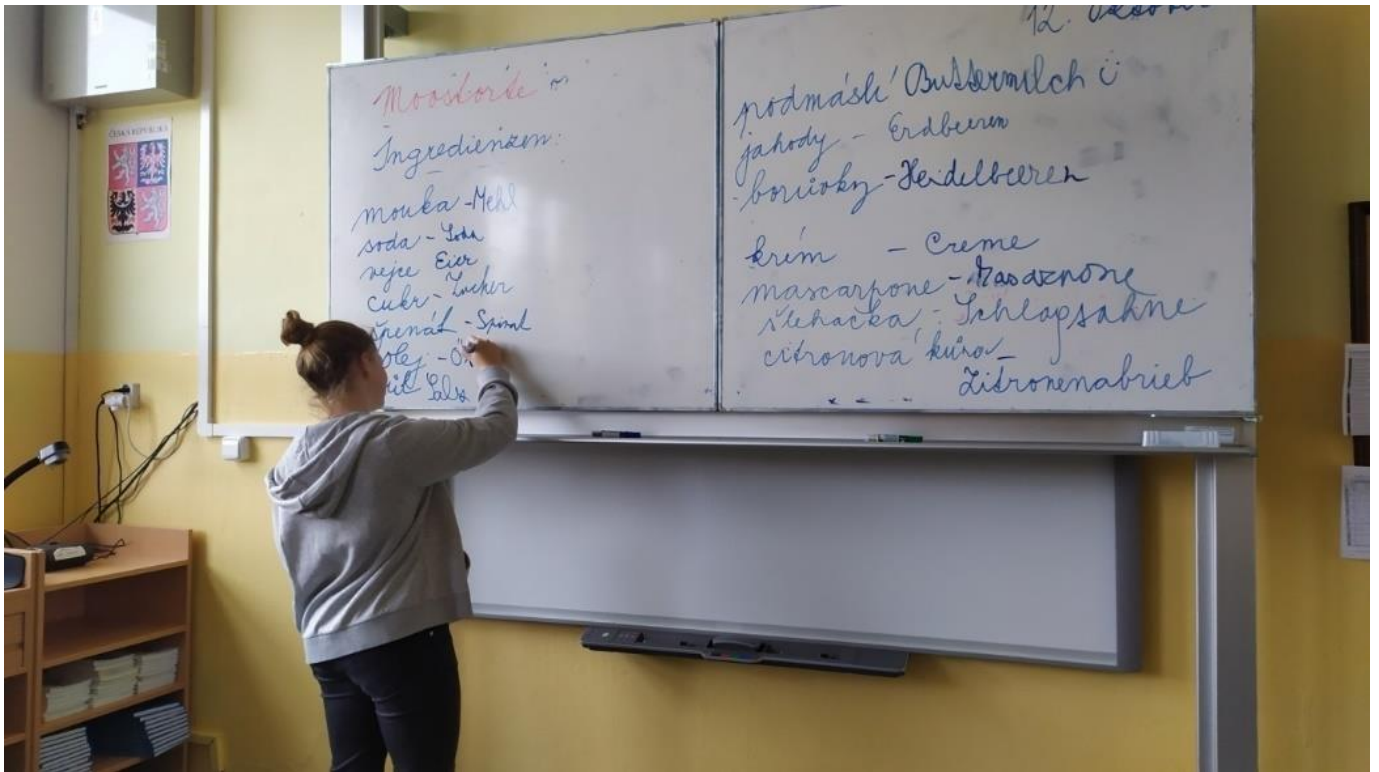 ČESKÁ REPUBLIKA
Moostorte
Ingredienzen:
mouka - Mehl
soda - Soda
vejce Eier
cukr - Zucker
špenát - Spinat
olej - Ö
Salz
12.
podmáslí Buttermilch
jahody - Erdbeeren
borůvky - Heidelbeeren
krém - Creme
mascarpone -
šlehačka - Schlagsahne
citronová kůra -
Zitronenabrieb